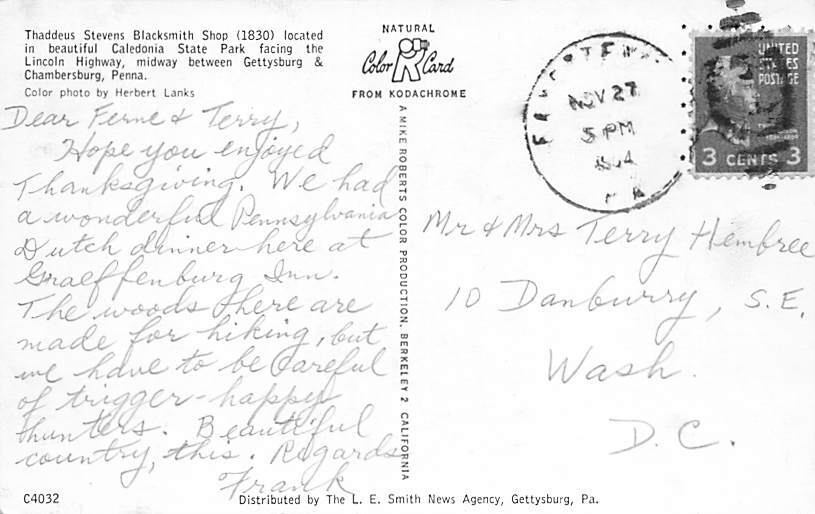 Thaddeus Stevens Blacksmith Shop (1830) located
in beautiful Caledonia State Park facing the
Lincoln Highway, midway between Gettysburg &
Chambersburg, Penna.
Color photo by Herbert Lanks
Dear Ferne & Terry,
Hope you enjoyed
Thanksgiving. We had
a wonderful Pennsylvania
Dutch dinner here at
Graeffenburg Inn.
The woods here are
made for hiking, but
we have to be careful
of trigger-happy
hunters. Beautiful
country, this. Regards
Frank
C4032
NATURAL
Color Card
FROM KODACHROME
A MIKE ROBERTS COLOR PRODUCTION, BERKELEY 2 CALIFORNIA
Distributed by The L. E. Smith News Agency, Gettysburg, Pa.
NOV 27
5 PM
UNITED
STATES
POSTAGE
3 CENTS 3
Mr & Mrs Terry Hembree
10 Danburry, S.E.
Wash.
D.C.